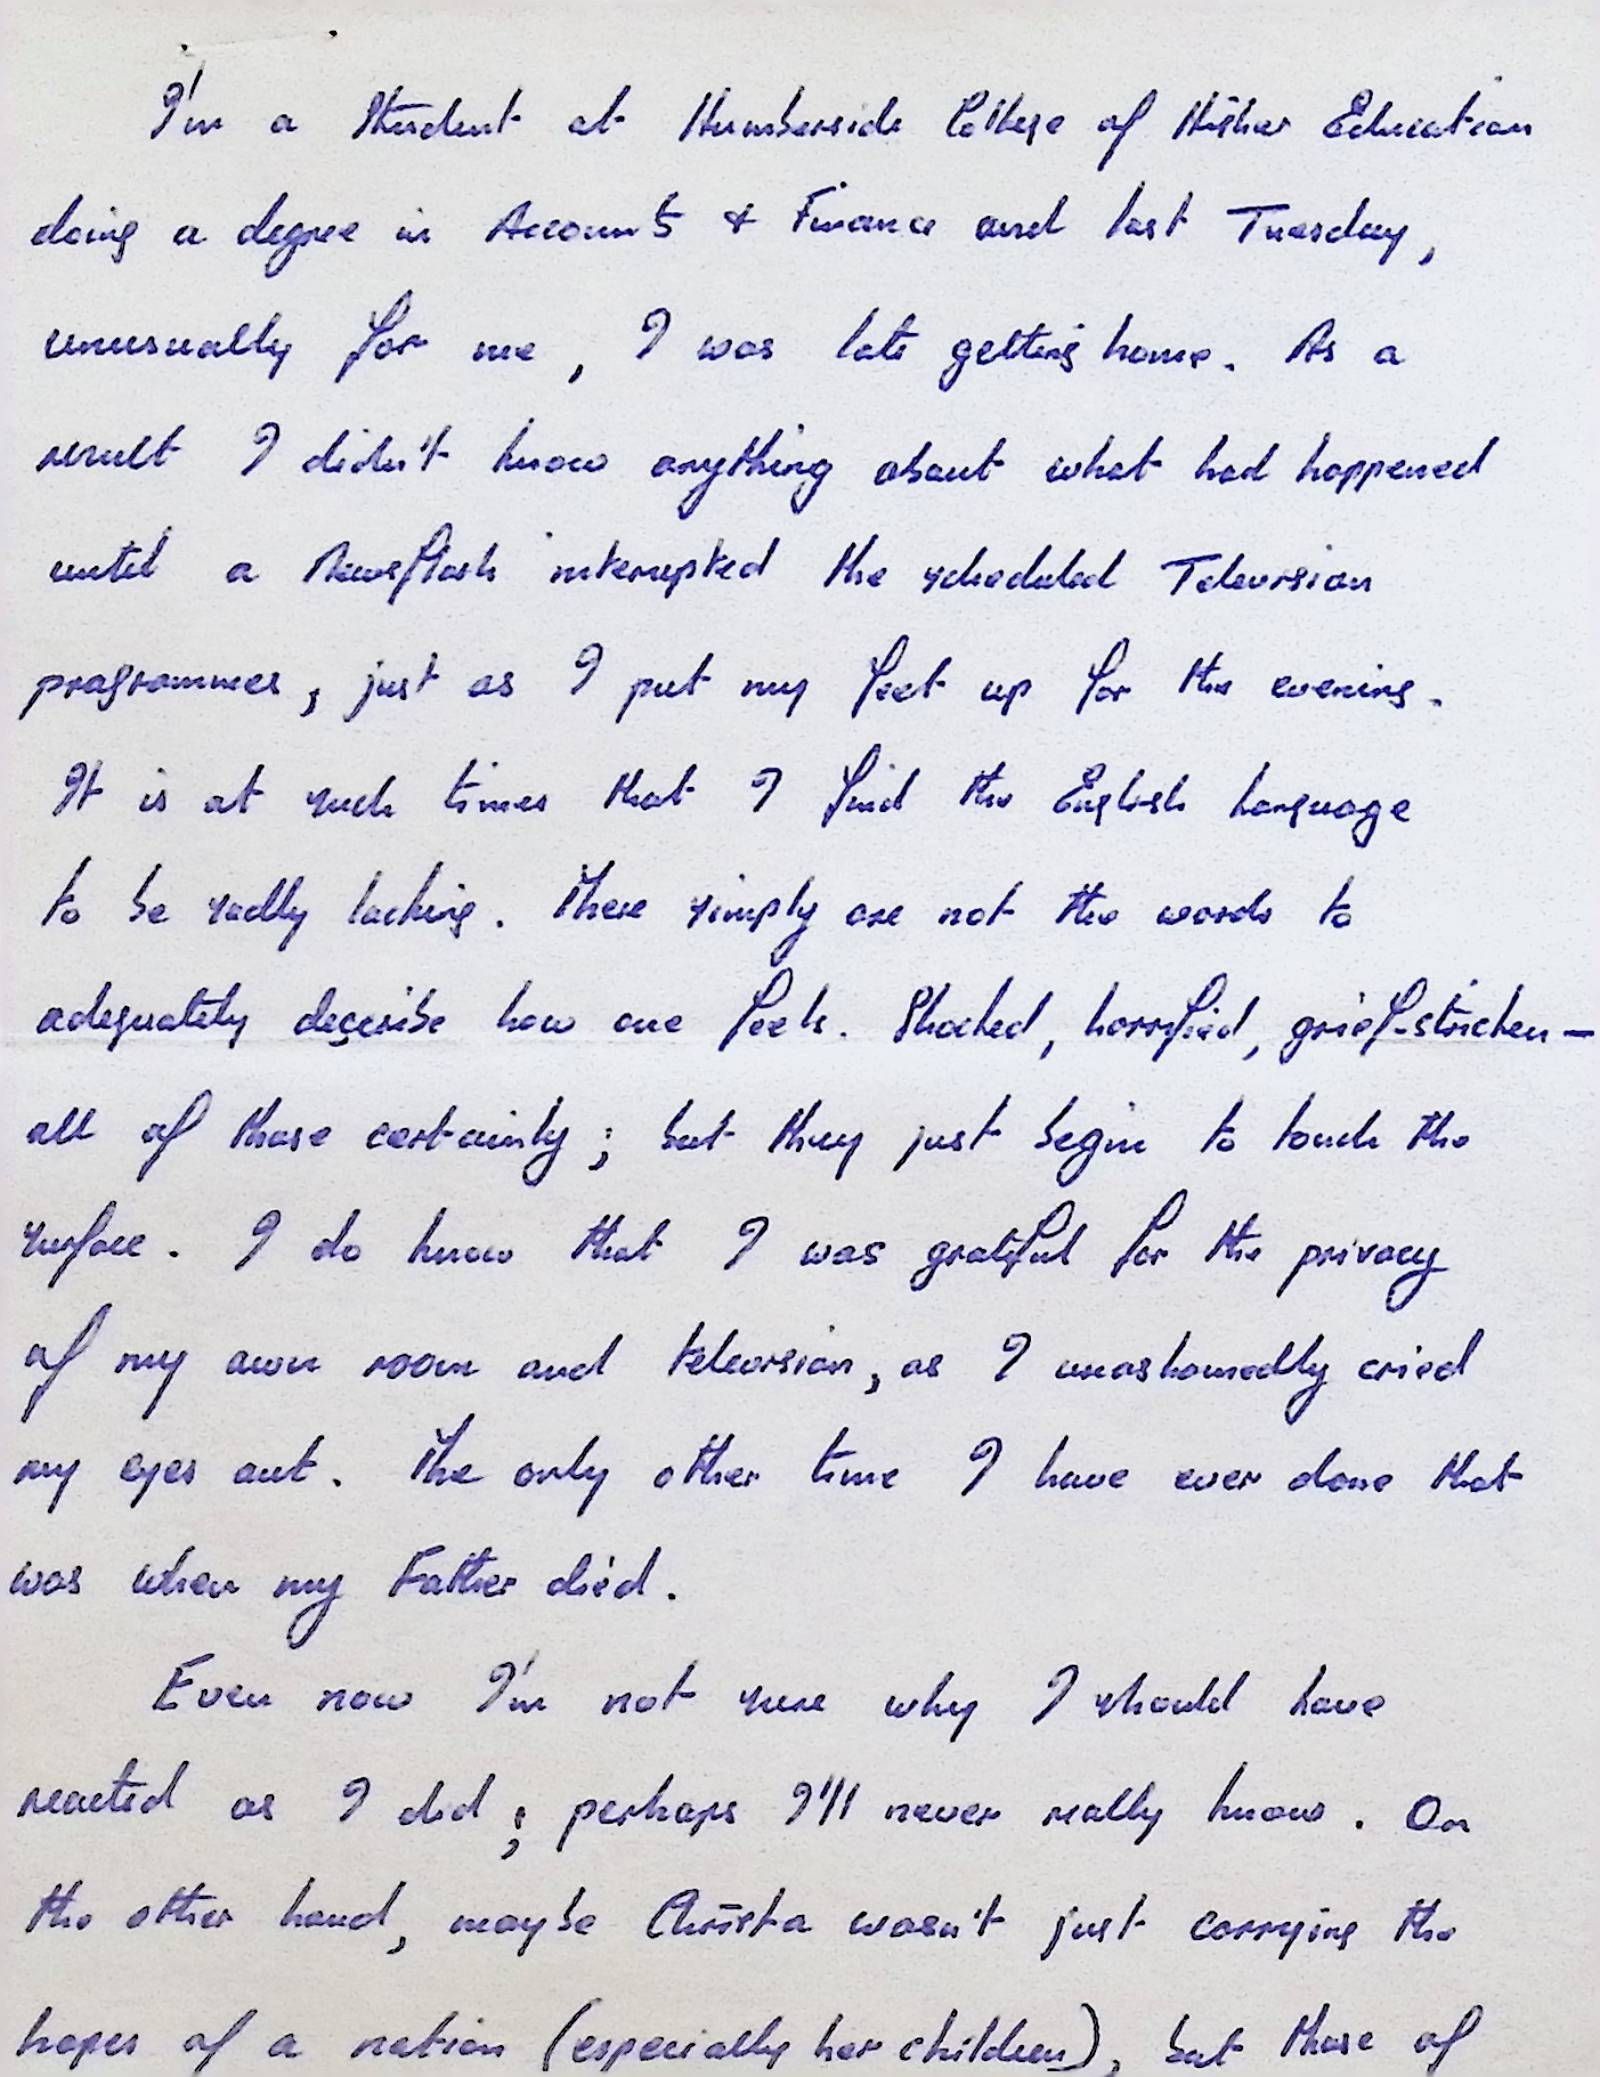 I'm a Student at Humberside College of Higher Education
doing a degree in Accounts & Finance and last Tuesday,
unusually for me, I was late getting home. As a
result I didn't know anything about what had happened
until a Newsflash interrupted the scheduled Television
programmes, just as I put my feet up for the evening.
It is at such times that I find the English language
to be sadly lacking. There simply are not the words to
adequately describe how one feels. Shocked, horrified, grief-stricken —
all of those certainly; but they just begin to touch the
surface. I do know that I was grateful for the privacy
of my own room and television, as I unashamedly cried
my eyes out. The only other time I have ever done that
was when my Father died.
Even now I'm not sure why I should have
reacted as I did; perhaps I'll never really know. On
the other hand, maybe Christa wasn't just carrying the
hopes of a nation (especially her children), but those of